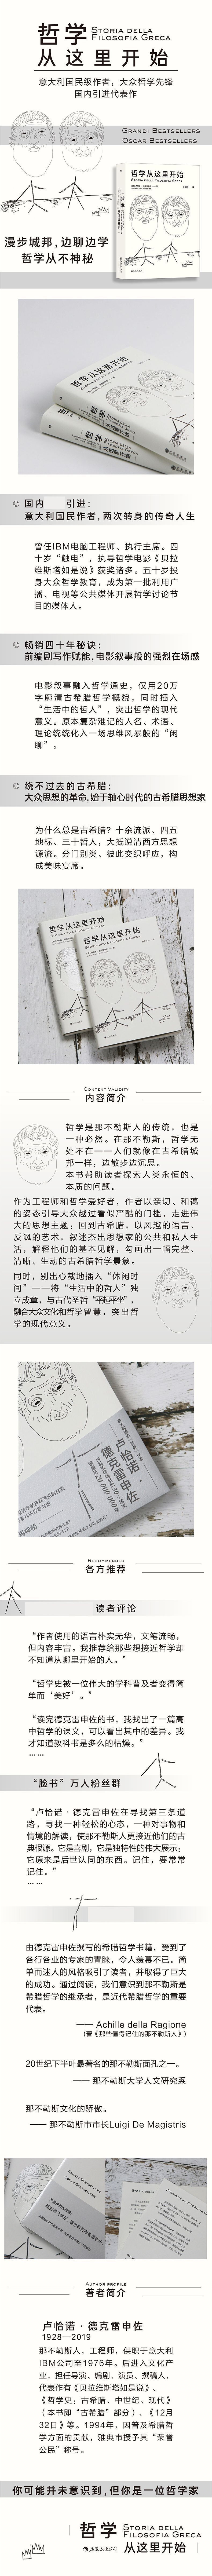 哲学 STORIA DELLA
FILOSOFIA GRECA
从这里开始
意大利国民级作者，大众哲学先锋
国内引进代表作
GRANDI BESTSELLERS
OSCAR BESTSELLERS
哲学从这里开始
漫步城邦，边聊边学
哲学从不神秘
哲学从这里开始
国内 引进：
意大利国民作者，两次转身的传奇人生
曾任IBM电脑工程师、执行主席。四
十岁“触电”，执导哲学电影《贝拉
维斯塔如是说》获奖诸多。五十岁投
身大众哲学教育，成为第一批利用广
播、电视等公共媒体开展哲学讨论节
目的媒体人。
畅销四十年秘诀：
前编剧写作赋能，电影叙事般的强烈在场感
电影叙事融入哲学通史，仅用20万
字廓清古希腊哲学概貌，同时插入
“生活中的哲人”，突出哲学的现代
意义。原本复杂难记的人名、术语、
理论统统化入一场思维风暴般的“闲
聊”。
绕不过去的古希腊：
大众思想的革命，始于轴心时代的古希腊思想家
为什么总是古希腊？十余流派、四五
地标、三十哲人，大抵说清西方思想
源流。分门别类、彼此交织呼应，构
成美味宴席。
哲学从这里开始
哲学从这里开始
CONTENT VALIDITY
内容简介
哲学是那不勒斯人的传统，也是
一种必然。在那不勒斯，哲学无
处不在——人们就像在古希腊城
邦一样，边散步边沉思。
本书帮助读者探索人类永恒的、
本质的问题。
作为工程师和哲学爱好者，作者以亲切、和蔼
的姿态引导大众越过看似严酷的门槛，走进伟
大的思想主题；回到古希腊，以风趣的语言、
反讽的艺术，叙述杰出思想家的公共和私人生
活，解释他们的基本见解，勾画出一幅完整、
清晰、生动的古希腊哲学景象。
同时，别出心裁地插入“休闲时
间”——将“生活中的哲人”独
立成章，与古代圣哲“平起平坐”，
融合大众文化和哲学智慧，突出哲
学的现代意义。
卢恰诺·
德克雷申佐
RECOMMENDED
各方推荐
读者评论
“作者使用的语言朴实无华，文笔流畅，
但内容丰富。我推荐给那些想接近哲学却
不知道从哪里开始的人。”
“哲学史被一位伟大的学科普及者变得简
单而‘美好’。”
“读完德克雷申佐的书，我找出了一篇高
中哲学的课文，可以看出其中的差异。我
才知道教科书是多么的枯燥。”
……
“脸书”万人粉丝群
“卢恰诺·德克雷申佐在寻找第三条道
路，寻找一种轻松的心态，一种对事物和
情境的解读，使那不勒斯人更接近他们的古
典根源。它是喜剧，它是独特性的伟大展示；
它原来是后世认同的东西。记住，要常常
记住。”
……
由德克雷申佐撰写的希腊哲学书籍，受到了
各行各业的专家的青睐，令人羡慕不已。简
单而迷人的风格吸引了读者，并取得了巨大
的成功。通过阅读，我们意识到那不勒斯是
希腊哲学的继承者，是近代希腊哲学的重要
代表。
—— Achille della Ragione
（著《那些值得记住的那不勒斯人》）
20世纪下半叶最著名的那不勒斯面孔之一。
—— 那不勒斯大学人文研究系
那不勒斯文化的骄傲。
—— 那不勒斯市市长Luigi De Magistris
AUTHOR PROFILE
著者简介
卢恰诺·德克雷申佐
1928—2019
那不勒斯人，工程师，供职于意大利
IBM公司至1976年。后进入文化产
业，担任导演、编剧、演员、撰稿人，
代表作有《贝拉维斯塔如是说》、
《哲学史：古希腊、中世纪、现代》
（本书即“古希腊”部分）、《12月
32日》等。1994年，因普及希腊哲
学方面的贡献，雅典市授予其“荣誉
公民”称号。
你可能并未意识到，但你是一位哲学家
哲学 STORIA DELLA
FILOSOFIA GRECA
后浪出版公司 从这里开始